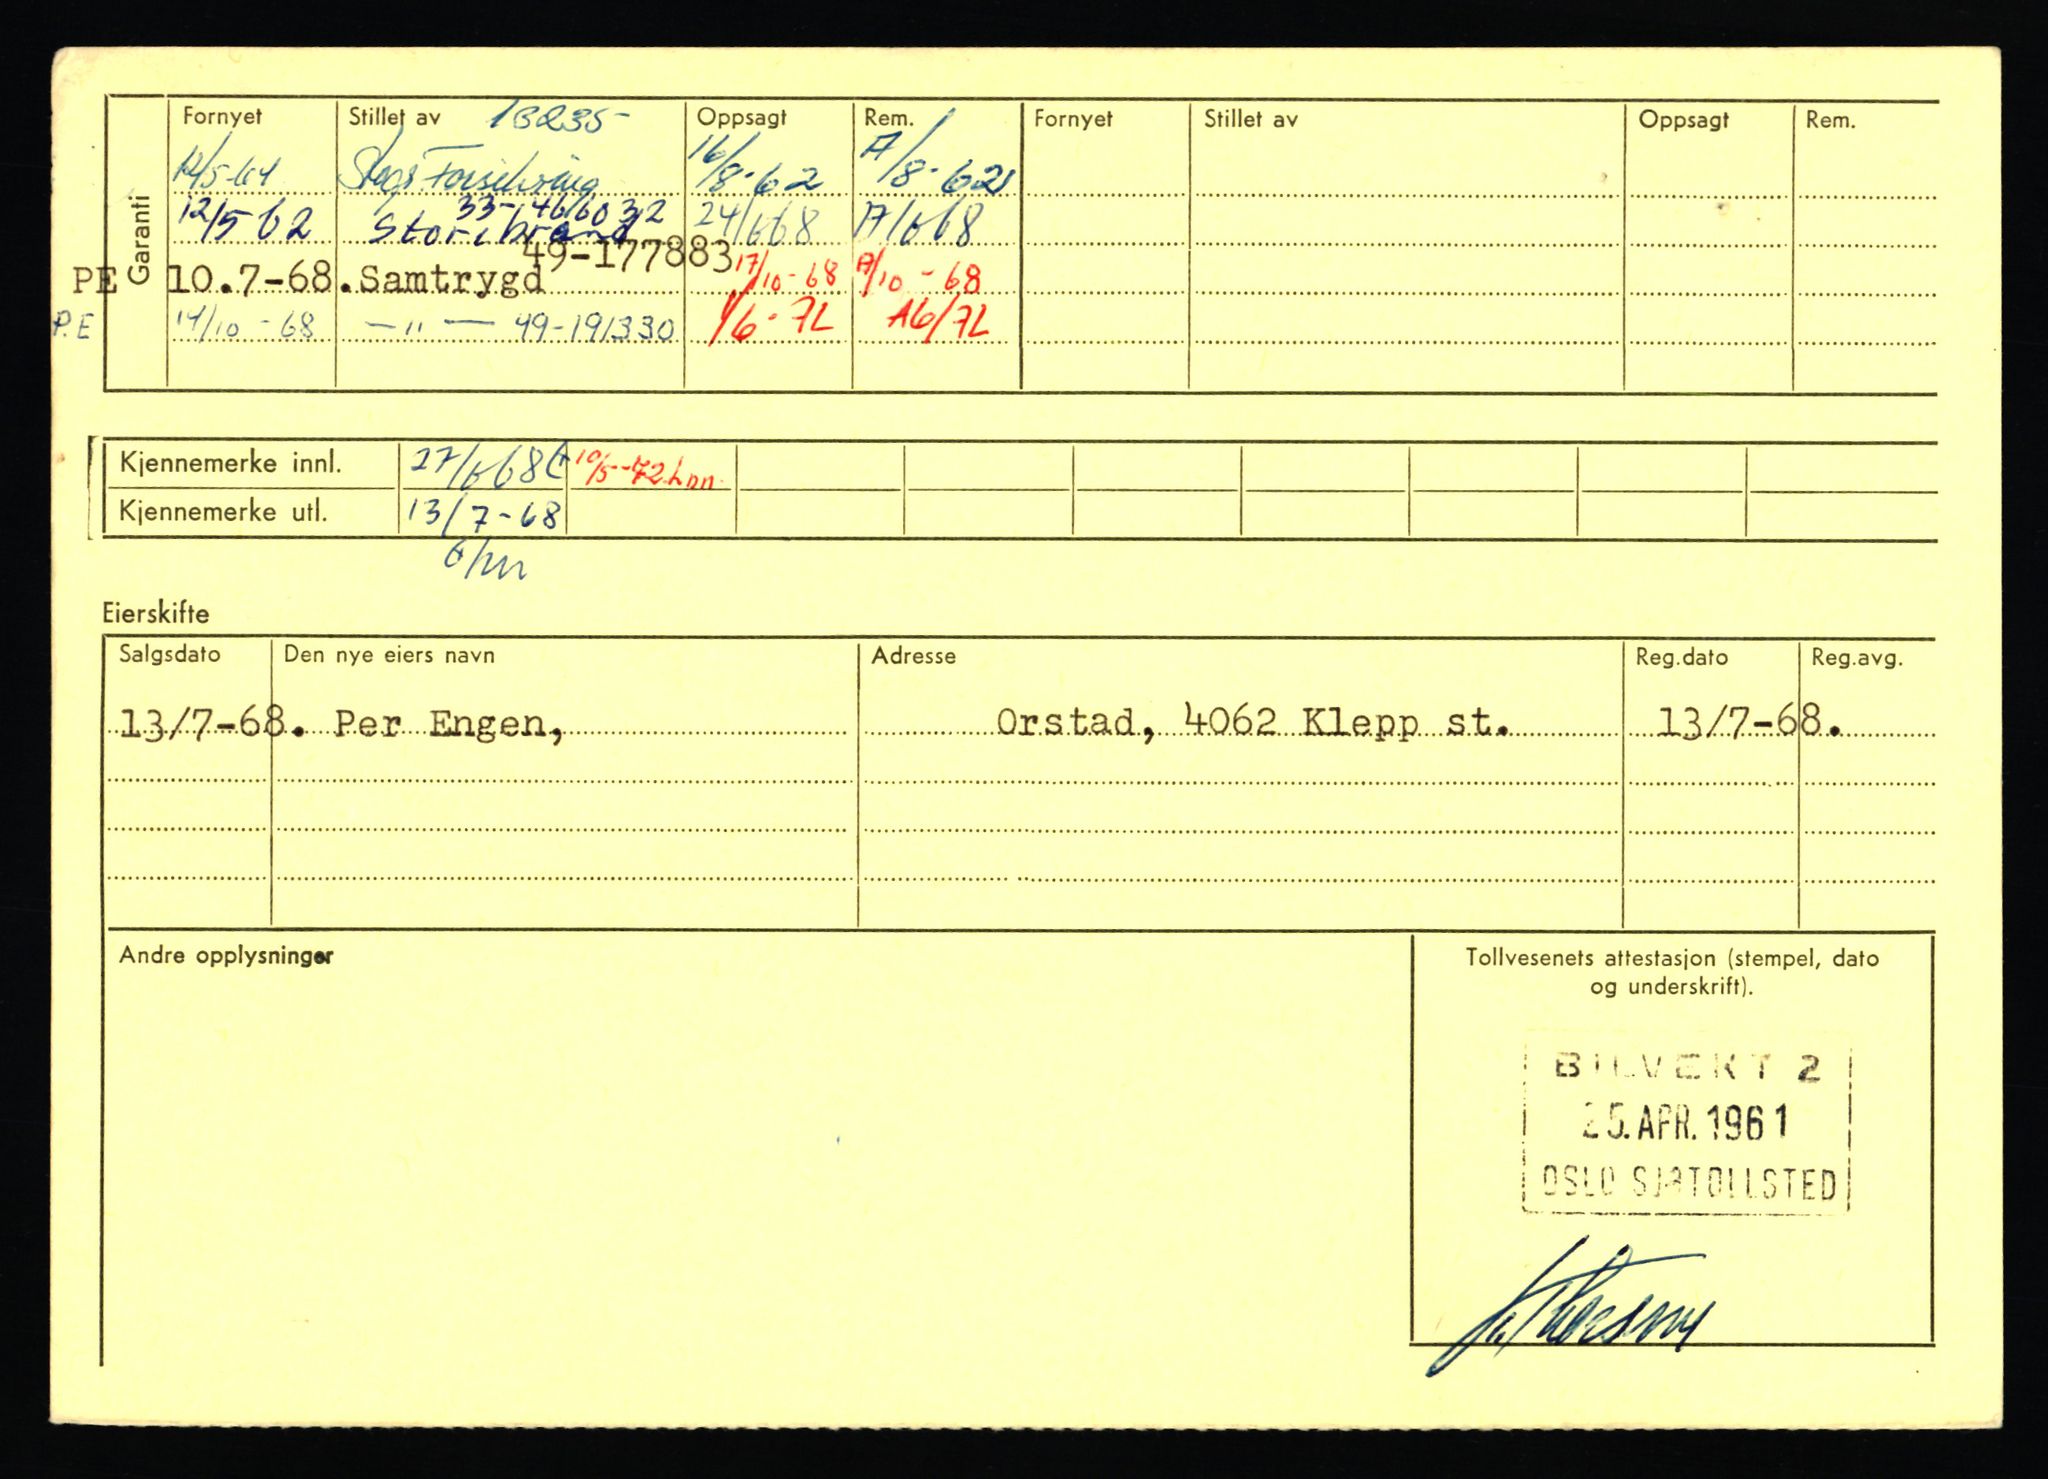 Fornyet Stillet av 13235- Oppsagt Rem. Fornyet Stillet av Oppsagt Rem.
16/8-62 /8-62
33-1466032
12/5 62 Storebrand 24/6 68 /6 68
49-177883
PE 10.7-68. Samtrygd 17/10-68 /10-68
P.E 14/10-68 —"— 49-191330 1/6-72 A6/72
Garanti
Kjennemerke innl. 27/6 68 10/5-72
Kjennemerke utl. 13/7-68
Eierskifte
Salgsdato Den nye eiers navn Adresse Reg.dato Reg.avg.
13/7-68. Per Engen, Orstad, 4062 Klepp st. 13/7-68.
Andre opplysninger
Tollvesenets attestasjon (stempel, dato
og underskrift).
BILVEKT 2
25. APR. 1961
OSLO SJØTOLLSTED